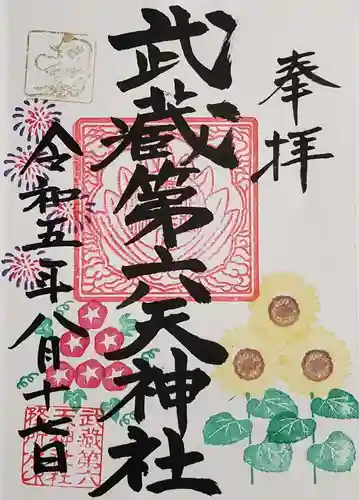 奉拝
武蔵第六天神社
令和五年八月十七日
武蔵第六
天神社